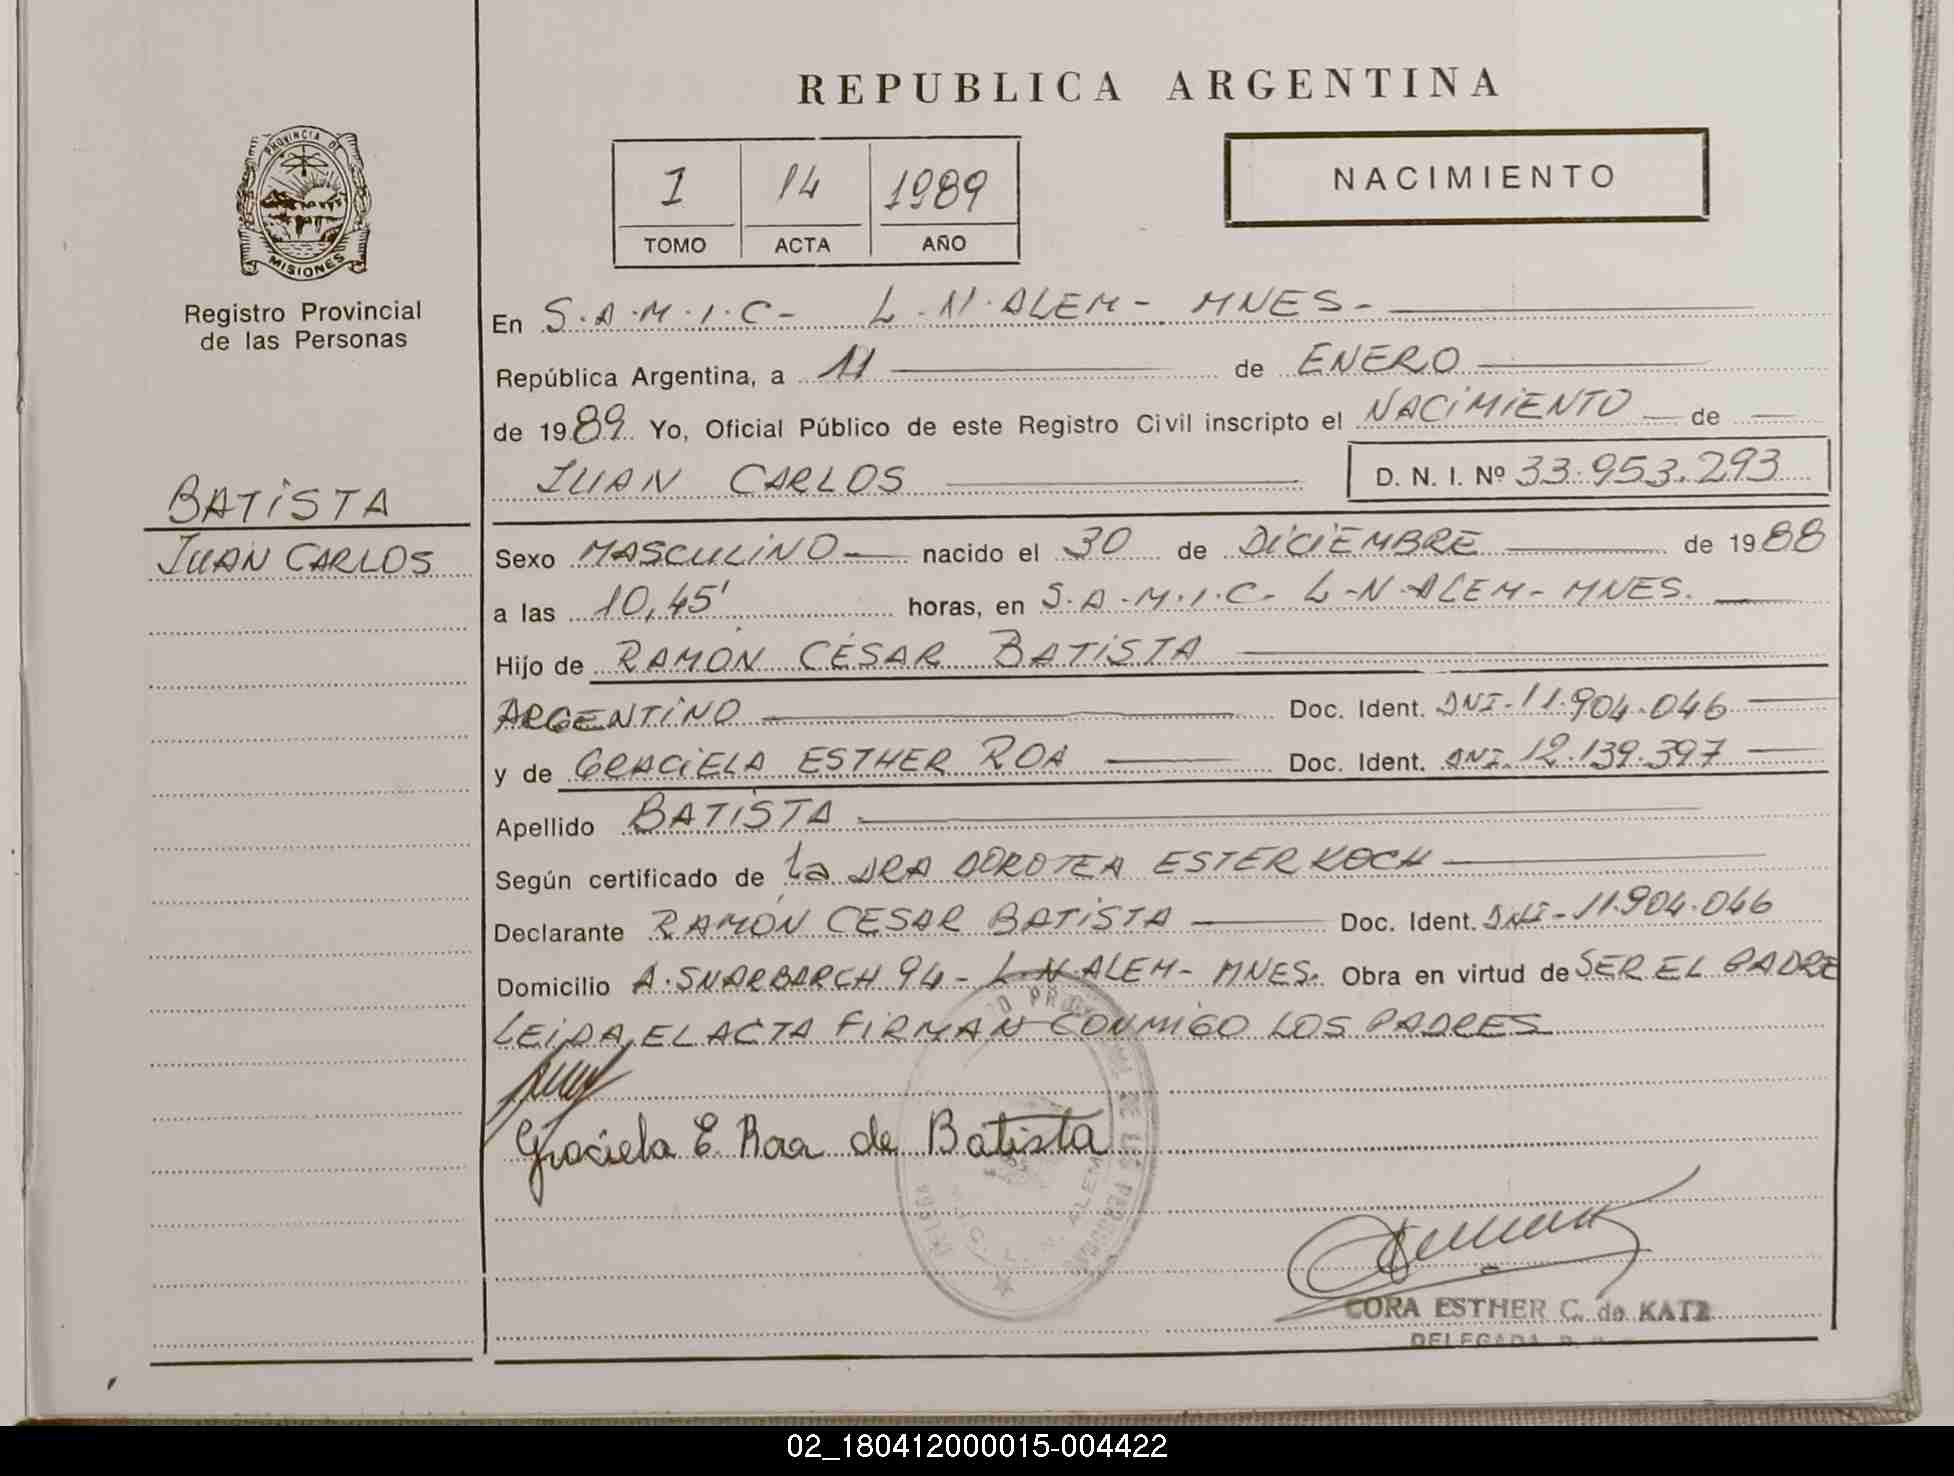 REPUBLICA ARGENTINA
PROVINCIA DE
MISIONES
Registro Provincial
de las Personas
I 14 1989
TOMO ACTA AÑO
NACIMIENTO
BATISTA
JUAN CARLOS
En S.A.M.I.C- L.N.ALEM- MNES-
República Argentina, a 11 de ENERO
de 1989. Yo, Oficial Público de este Registro Civil inscripto el NACIMIENTO de
JUAN CARLOS D. N. I. Nº 33.953.293
Sexo MASCULINO nacido el 30 de DICIEMBRE de 1988
a las 10,45' horas, en S.A.M.I.C- L-N-ALEM- MNES.
Hijo de RAMÓN CÉSAR BATISTA
ARGENTINO Doc. Ident. DNI-11.904.046
y de GRACIELA ESTHER ROA Doc. Ident. DNI.12.139.397
Apellido BATISTA
Según certificado de la DRA DOROTEA ESTER KOCH
Declarante RAMÓN CESAR BATISTA Doc. Ident. DNI-11.904.046
Domicilio A. SNARBARCH 94- L.N.ALEM- MNES. Obra en virtud de SER EL PADRE
LEIDA EL ACTA FIRMAN CONMIGO LOS PADRES
Graciela E. Roa de Batista
CORA ESTHER C. de KATZ
DELEGADA
02_180412000015-004422